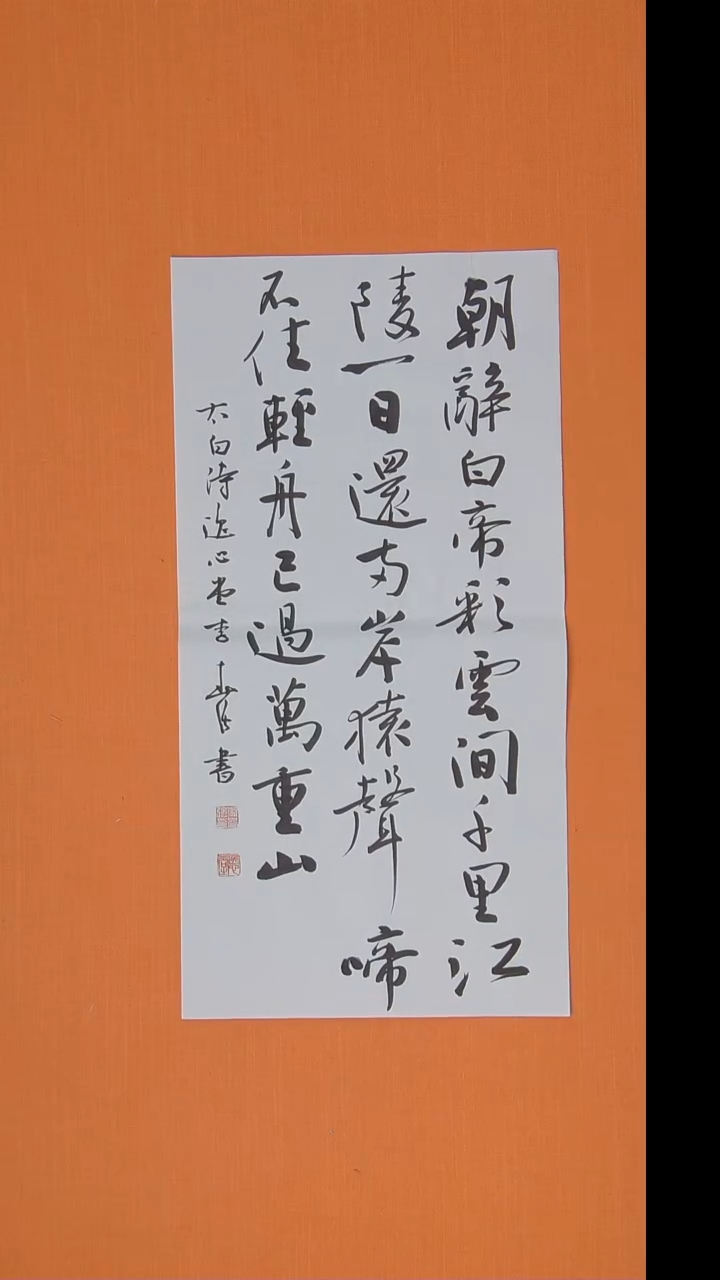 朝辭白帝彩雲間千里江
陵一日還兩岸猿聲啼
不住輕舟已過萬重山
太白詩 心堂李 書